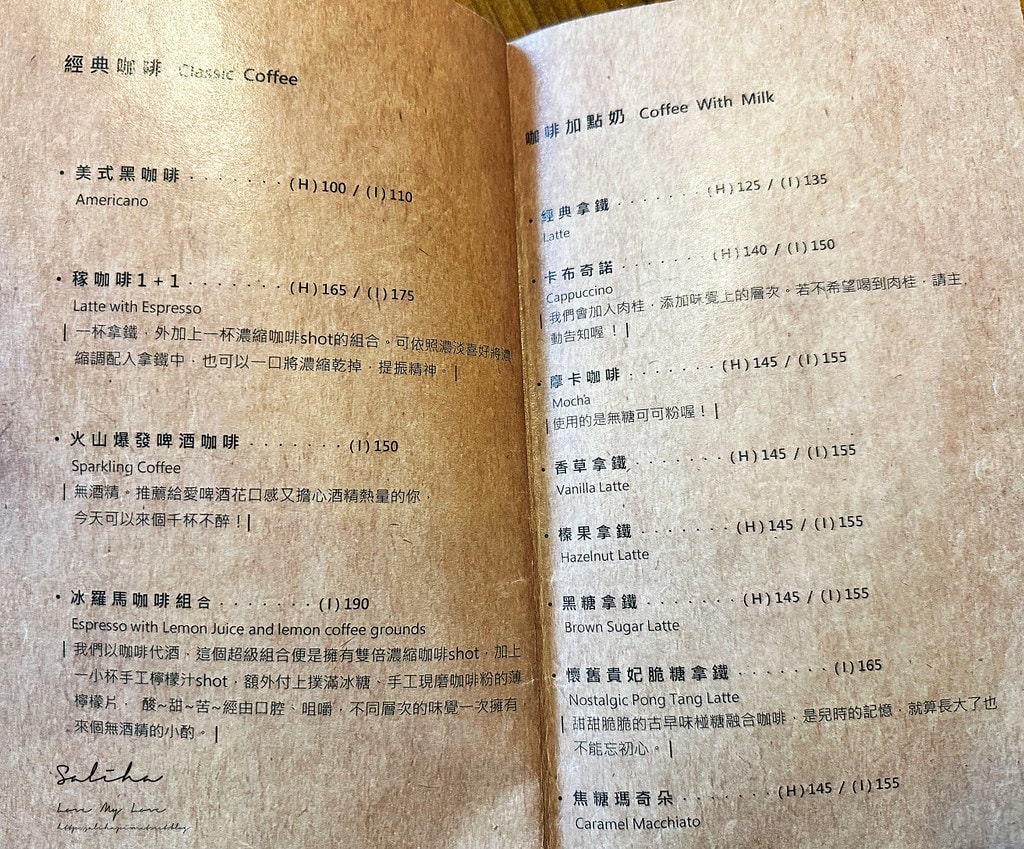 經典咖啡 Classic Coffee
• 美式黑咖啡 . . . . . . . (H)100 / (I)110
Americano
• 稼咖啡1+1 . . . . . . . . (H)165 / (I)175
Latte with Espresso
| 一杯拿鐵，外加上一杯濃縮咖啡shot的組合。可依照濃淡喜好將濃
縮調配入拿鐵中，也可以一口將濃縮乾掉，提振精神。|
• 火山爆發啤酒咖啡 . . . . . . . (I)150
Sparkling Coffee
| 無酒精。推薦給愛啤酒花口感又擔心酒精熱量的你，
今天可以來個千杯不醉！|
• 冰羅馬咖啡組合 . . . . . . . (I)190
Espresso with Lemon Juice and lemon coffee grounds
| 我們以咖啡代酒，這個超級組合便是擁有雙倍濃縮咖啡shot，加上
一小杯手工檸檬汁shot，額外付上撲滿冰糖、手工現磨咖啡粉的薄
檸檬片， 酸~甜~苦~經由口腔、咀嚼，不同層次的味覺一次擁有，
來個無酒精的小酌。|
Saliha
Love My Love
咖啡加點奶 Coffee With Milk
• 經典拿鐵 . . . . . . . (H)125 / (I)135
Latte
• 卡布奇諾 . . . . . . . (H)140 / (I)150
Cappuccino
| 我們會加入肉桂，添加味覺上的層次。若不希望喝到肉桂，請主
動告知喔！|
• 摩卡咖啡 . . . . . . . (H)145 / (I)155
Mocha
| 使用的是無糖可可粉喔！|
• 香草拿鐵 . . . . . . . (H)145 / (I)155
Vanilla Latte
• 榛果拿鐵 . . . . . . . (H)145 / (I)155
Hazelnut Latte
• 黑糖拿鐵 . . . . . . . (H)145 / (I)155
Brown Sugar Latte
• 懷舊貴妃脆糖拿鐵 . . . . . . . (I)165
Nostalgic Pong Tang Latte
| 甜甜脆脆的古早味椪糖融合咖啡，是兒時的記憶，就算長大了也
不能忘初心。|
• 焦糖瑪奇朵 . . . . . . . (H)145 / (I)155
Caramel Macchiato